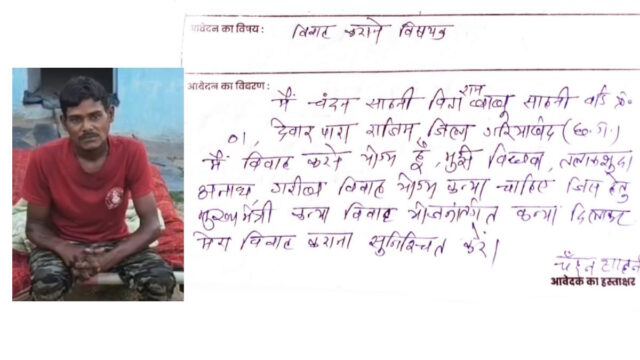 आवेदन का विषय: विवाह कराने विषयक
आवेदन का विवरण:
मैं चंदन साहनी पिता राम बाबू साहनी वार्ड क्र.
01, देवार पारा राजिम, जिला गरियाबंद (छ.ग.)
मैं विवाह करने योग्य हूँ, मुझे विधवा, तलाकशुदा
अनाथ गरीब विवाह योग्य कन्या चाहिए जिस हेतु
मुख्यमंत्री कन्या विवाह योजनांर्गत कन्या दिलाकर
मेरा विवाह कराना सुनिश्चित करें।
आवेदक का हस्ताक्षर